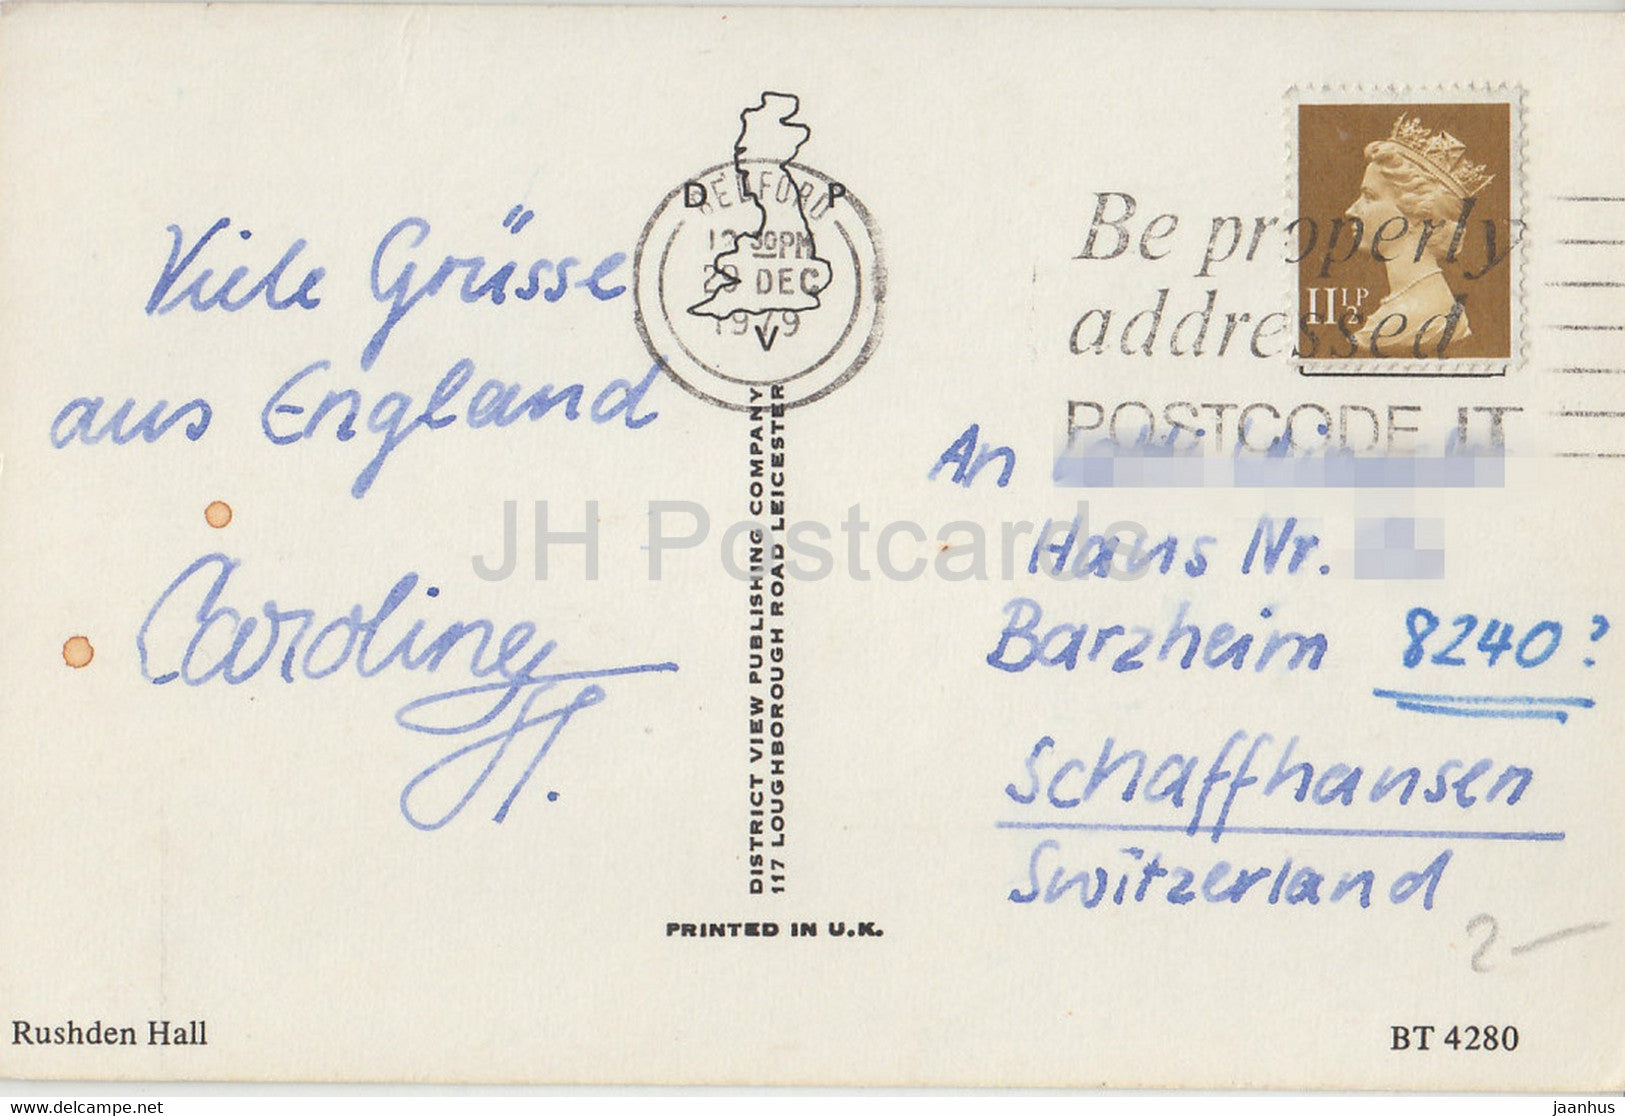 Viele Grüsse
aus England
Caroline
H.
D P
V
BEDFORD
PM
DEC
1979
DISTRICT VIEW PUBLISHING COMPANY
117 LOUGHBOROUGH ROAD LEICESTER
PRINTED IN U.K.
Be properly
addressed
POSTCODE IT
11½P
An
Haus Nr.
Barzheim 8240?
Schaffhausen
Switzerland
2-
Rushden Hall
BT 4280
JH Postcards
www.delcampe.net
jaanhus